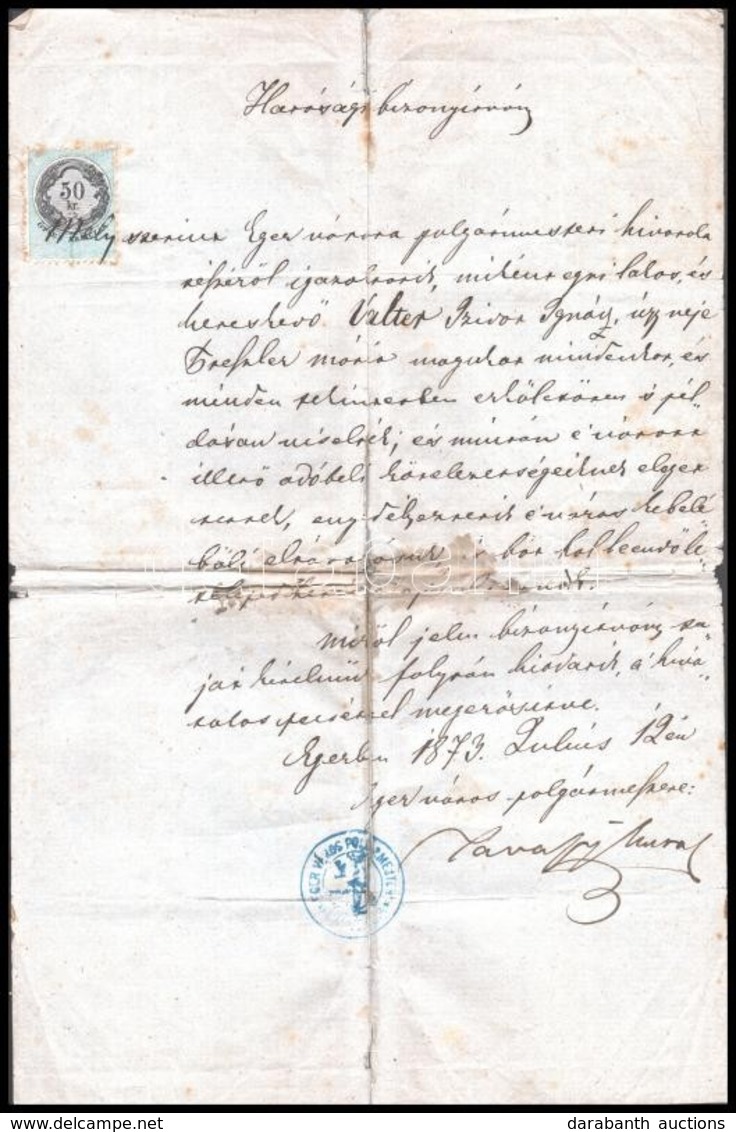 Hatósági bizonyitvány
50
kr.
Mely szerint Eger városa polgármesteri hivatala
részéről igazoltatik, miként egri lakos, és
kereskedő Valter Ignácz, úgy neje
Mária magukat mindenkor, és
minden tekintetben erkölcsösen s pél-
dásan viselték; és miután e várost
illető adóbeli kötelezettségeiknek eleget
tettek, e város kebelé-
ből
miről jelen bizonyitvány sa-
ját kérelmük folytán kiadatik, a hiva-
talos pecséttel megerősitve.
Egerben 1873. Julius 12én
Eger város polgármestere:
Tavasy Antal
EGER VÁROS POLGÁRMESTERI
darabanth auctions